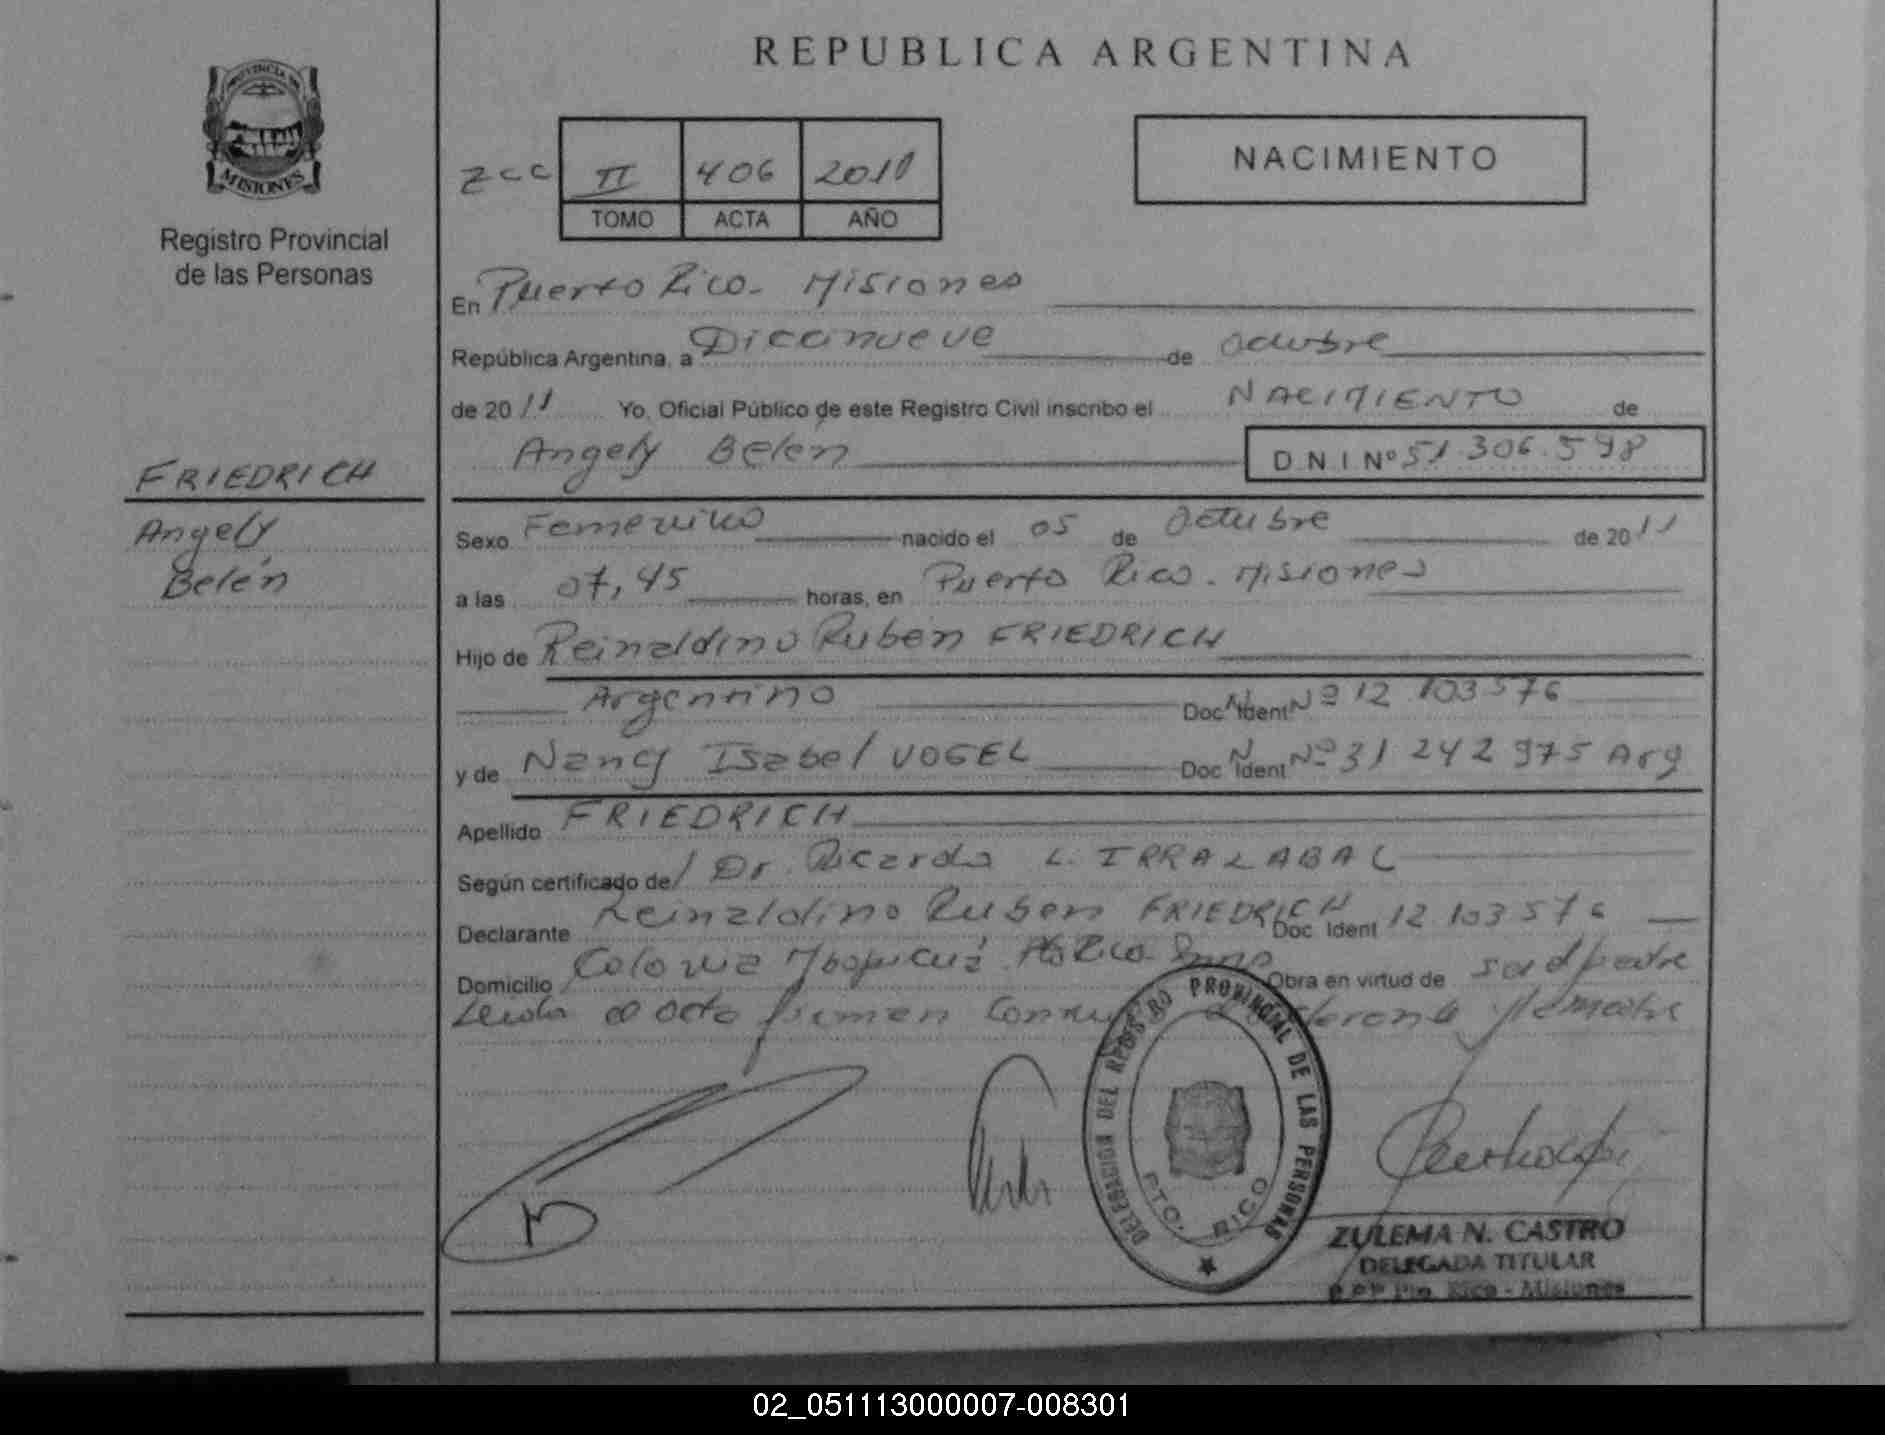 PROVINCIA DE
MISIONES
Registro Provincial
de las Personas
FRIEDRICH
Angely
Belén
REPUBLICA ARGENTINA
zcc II 406 2011
TOMO ACTA AÑO
NACIMIENTO
En Puerto Rico - Misiones
República Argentina, a Diecinueve de octubre
de 20 11 Yo, Oficial Público de este Registro Civil inscribo el NACIMIENTO de
Angely Belén D N I Nº 51.306.598
Sexo Femenino nacido el 05 de Octubre de 20 11
a las 07,45 horas, en Puerto Rico - Misiones
Hijo de Reinaldino Ruben FRIEDRICH
Argentino Doc N Ident Nº 12 103 576
y de Nancy Isabel VOGEL Doc N Ident Nº 31 242 975 Arg
Apellido FRIEDRICH
Según certificado de Dr. Ricardo L. IRRALABAL
Declarante Reinaldino Ruben FRIEDRICH Doc Ident 12 103 576
Domicilio Colonia Pto Rico Obra en virtud de
Leida el acta firman y la madre
DELEGACION DEL REGISTRO PROVINCIAL DE LAS PERSONAS
PTO. RICO
ZULEMA N. CASTRO
DELEGADA TITULAR
R.P.P. Pto. Rico - Misiones
02_051113000007-008301